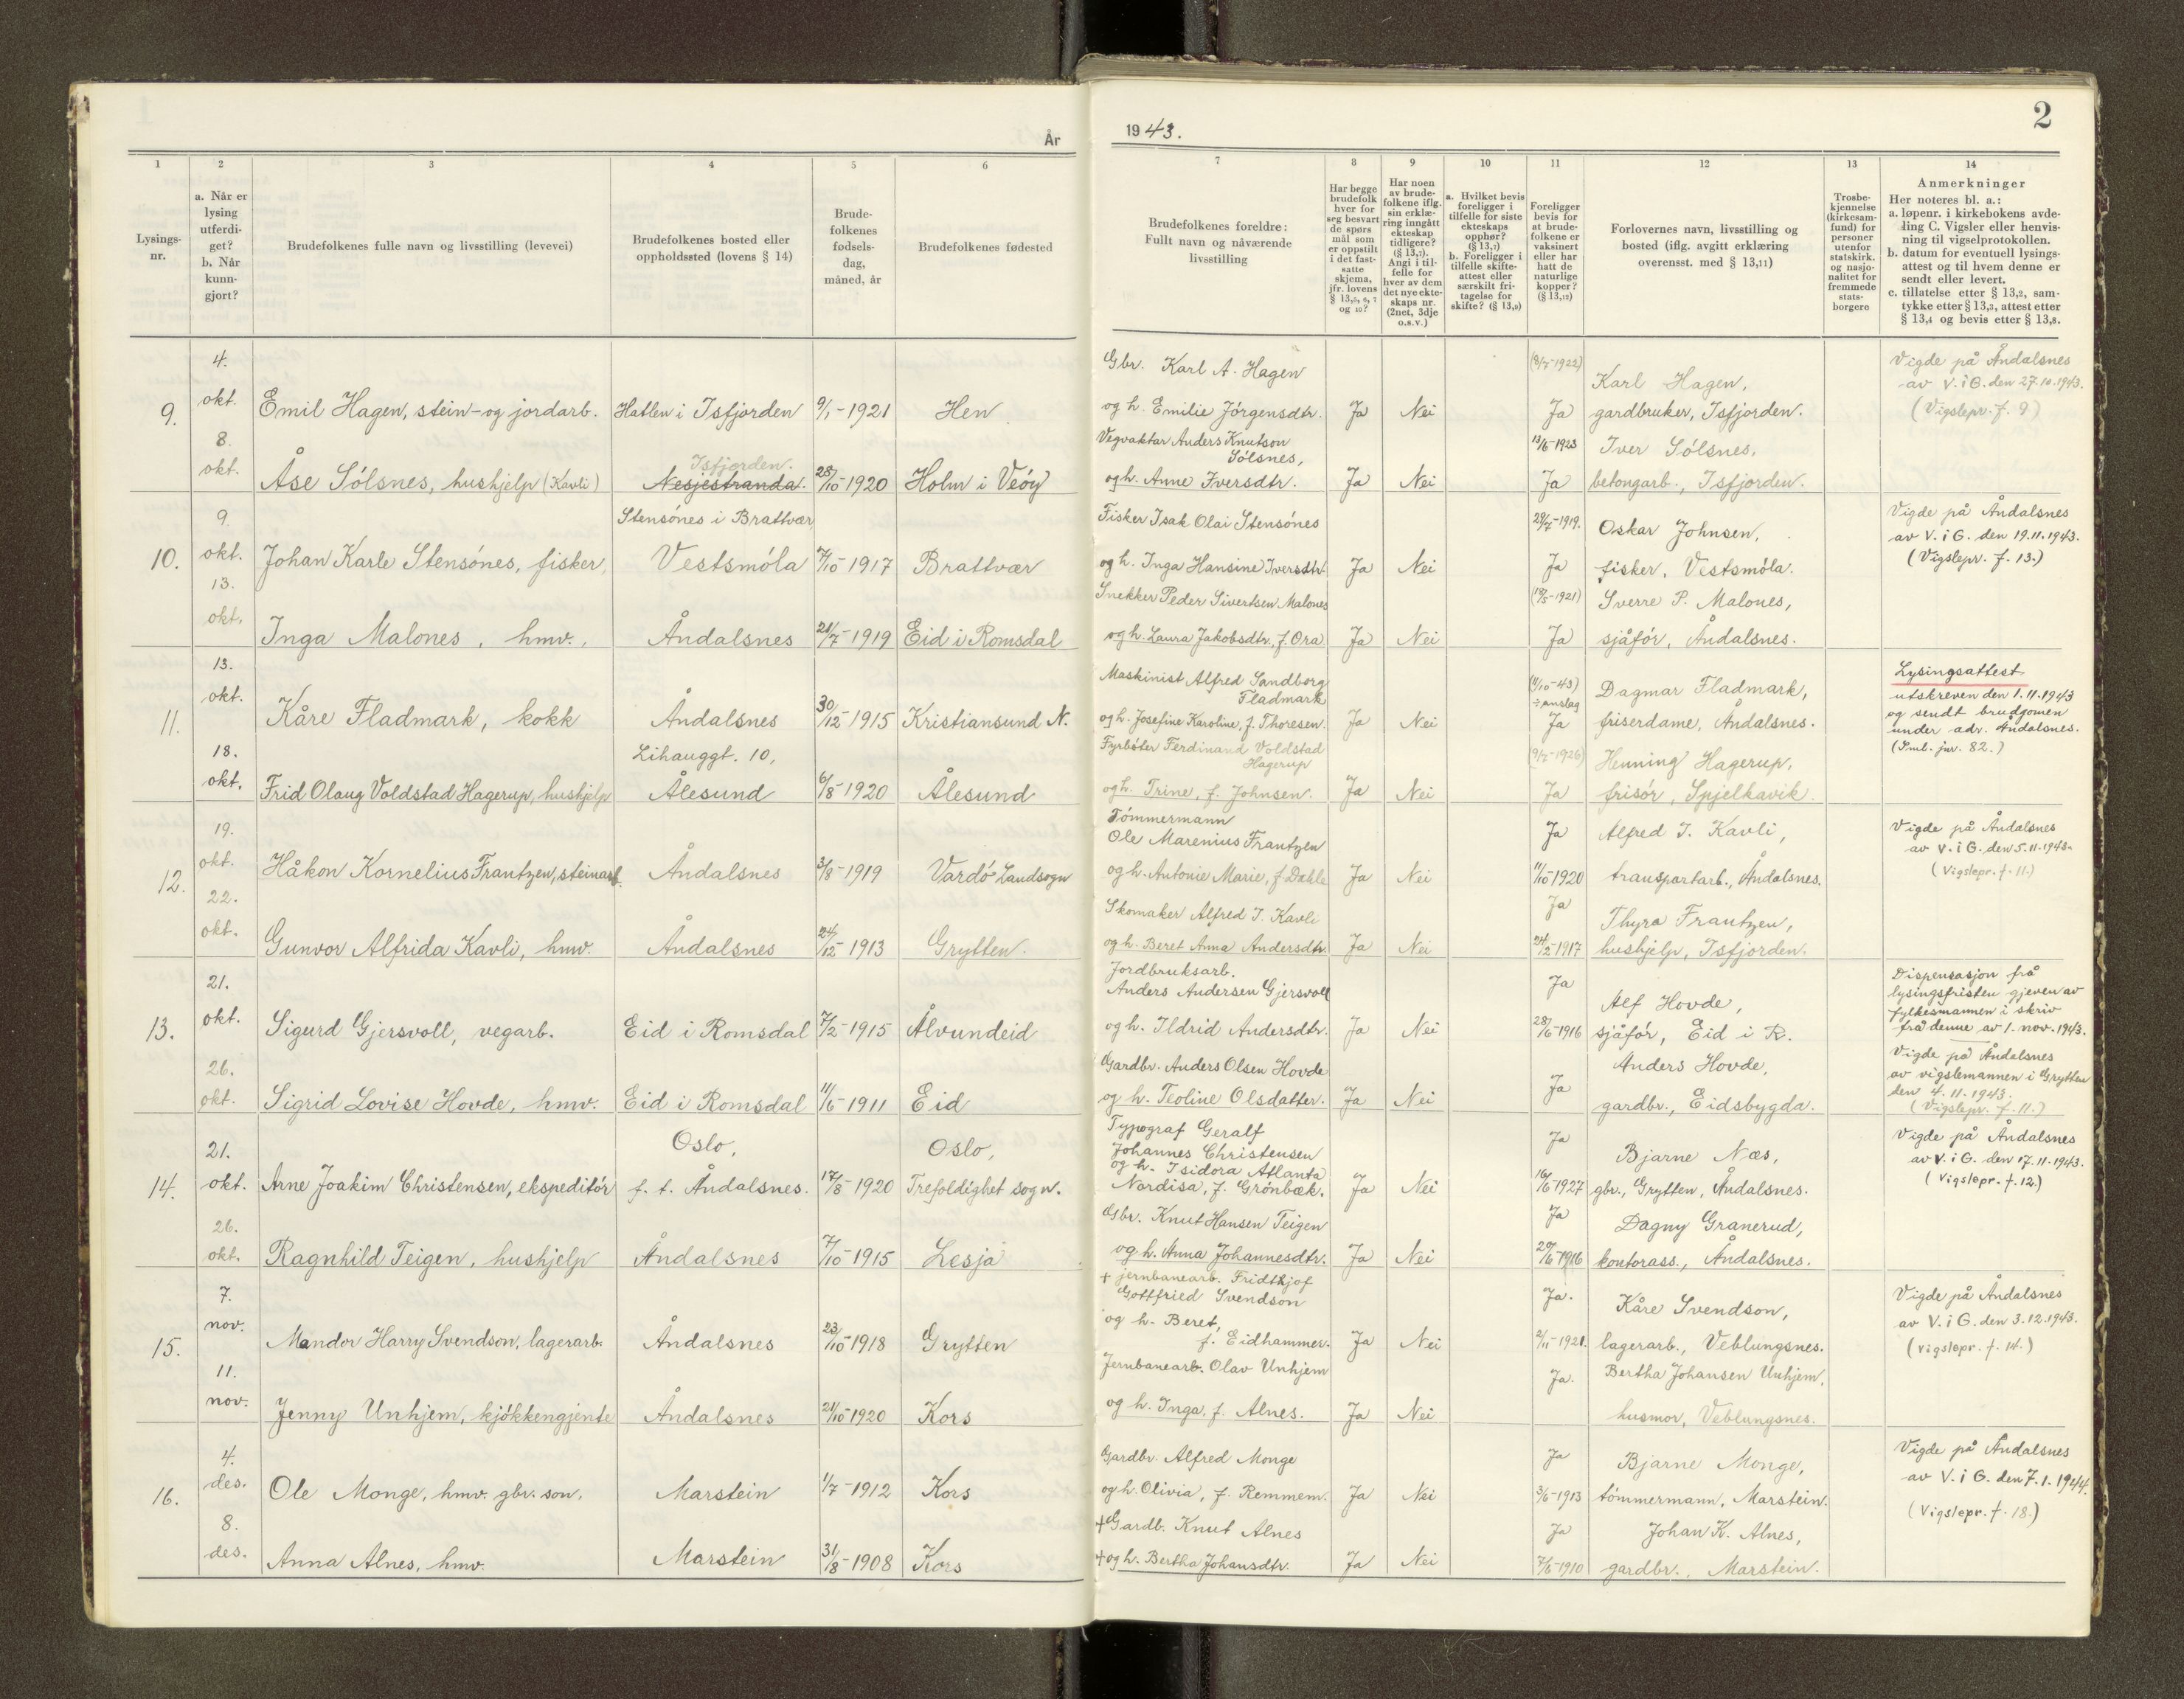 År
1943.
2
1
2
3
4
5
6
7
8
9
10
11
12
13
14
Lysings-
nr.
a. Når er
lysing
utferdi-
get?
b. Når
kunn-
gjort?
Brudefolkenes fulle navn og livsstilling (levevei)
Brudefolkenes bosted eller
oppholdssted (lovens § 14)
Brude-
folkenes
fødsels-
dag,
måned, år
Brudefolkenes fødested
Brudefolkenes foreldre:
Fullt navn og nåværende
livsstilling
Har begge
brudefolk
hver for
seg besvart
de spørs
mål som
er oppstilt
i det fast-
satte
skjema,
jfr. lovens
§ 13,5, 6, 7
og 10?
Har noen
av brude-
folkene iflg.
sin erklæ-
ring inngått
ekteskap
tidligere?
(§ 13,7).
Angi i til-
felle for
hver av dem
det nye ekte-
skaps nr.
(2net, 3dje
o.s.v.)
a. Hvilket bevis
foreligger i
tilfelle for siste
ekteskaps
opphør?
(§ 13,7)
b. Foreligger i
tilfelle skifte-
attest eller
særskilt fri-
tagelse for
skifte? (§ 13,9)
Foreligger
bevis for
at brude-
folkene er
vaksinert
eller har
hatt de
naturlige
kopper?
(§ 13,12)
Forlovernes navn, livsstilling og
bosted (iflg. avgitt erklæring
overensst. med § 13,11)
Trosbe-
kjennelse
(kirkesam-
fund) for
personer
utenfor
statskirk.
og nasjo-
nalitet for
fremmede
stats-
borgere
Anmerkninger
Her noteres bl. a.:
a. løpenr. i kirkebokens avde-
ling C. Vigsler eller henvis-
ning til vigselprotokollen.
b. datum for eventuell lysings-
attest og til hvem denne er
sendt eller levert.
c. tillatelse etter § 13,2, sam-
tykke etter § 13,3, attest etter
§ 13,4 og bevis etter § 13,8.
9.
4.
okt.
Emil Hagen, stein- og jordarb.
Hatlen i Isfjorden
9/1-1921
Hen
Gbr. Karl A. Hagen
og h. Emilie Jörgensdtr.
Ja
Nei
(8/7-1922)
Ja
Karl Hagen,
gardbruker, Isfjorden.
Vigde på Åndalsnes
av V. i G. den 27.10.1943.
(Vigslepr. f. 9)
8.
okt.
Åse Sólsnes, hushjelp (Kavli)
Isfjorden.
Nesjestranda.
28/10-1920
Holm i Veöy
Vegvaktar Anders Knutson
Sólsnes,
og h. Anne Iversdtr.
Ja
Nei
13/6-1923
Ja
Iver Sólsnes,
betongarb., Isfjorden.
10.
9.
okt.
Johan Karle Stensónes, fisker,
Stensónes i Brattvær
Vestsmóla
7/10-1917
Brattvær
Fisker Isak Olai Stensónes
og h. Inga Hansine Iversdtr.
Ja
Nei
29/7-1919.
Ja
Oskar Johnsen,
fisker, Vestsmóla.
Vigde på Åndalsnes
av V. i G. den 19.11.1943.
(Vigslepr. f. 13.)
13.
okt.
Inga Malones, hmv.,
Åndalsnes
21/7-1919
Eid i Romsdal
Snekker Peder Sivertsen Malones
og h. Laura Jakobsdtr., f. Ora
Ja
Nei
(19/5-1921)
Ja
Sverre P. Malones,
sjåför, Åndalsnes.
11.
13.
okt.
Kåre Fladmark, kokk
Åndalsnes
30/12-1915
Kristiansund N.
Maskinist Alfred Sandborg
Fladmark
og h. Josefine Karoline, f. Thoresen.
Ja
Nei
(11/10-43)
÷ anslag
Ja
Dagmar Fladmark,
friserdame, Åndalsnes.
Lysingsattest
utskreven den 1.11.1943
og sendt brudgomen
under adr. Åndalsnes.
(Iml. jnr. 82.)
18.
okt.
Frid Olaug Voldstad Hagerup, hushjelp
Lihauggt. 10,
Ålesund
6/8-1920
Ålesund
Fyrböter Ferdinand Voldstad
Hagerup
og h. Trine, f. Johnsen.
Ja
Nei
(9/7-1926)
Ja
Henning Hagerup,
frisór, Spjelkavik.
12.
19.
okt.
Håkon Kornelius Frantzen, steinarb.
Åndalsnes
3/8-1919
Vardö Landsogn
Tömmermann
Ole Marenius Frantzen
og h. Antonie Marie, f. Dahle
Ja
Nei
Ja
11/10-1920
Alfred J. Kavli,
transportarb., Åndalsnes.
Vigde på Åndalsnes
av V. i G. den 5.11.1943.
(Vigslepr. f. 11.)
22.
okt.
Gunvor Alfrida Kavli, hmv.
Åndalsnes
24/12-1913
Grytten.
Skomaker Alfred J. Kavli
og h. Beret Anna Andersdtr.
Ja
Nei
Ja
24/2-1917
Thyra Frantzen,
hushjelp, Isfjorden.
13.
21.
okt.
Sigurd Gjersvoll, vegarb.
Eid i Romsdal
7/2-1915
Ålvundeid
Jordbruksarb.
Anders Andersen Gjersvoll
og h. Ildrid Andersdtr.
Ja
Nei
Ja
28/6-1916
Alf Hovde,
sjåför, Eid i R.
Dispensasjon frå
lysingsfristen gjeven av
fylkesmannen i skriv
frå denne av 1. nov. 1943.
26.
okt.
Sigrid Lovise Hovde, hmv.
Eid i Romsdal
11/6-1911
Eid
Gardbr. Anders Olsen Hovde
og h. Teoline Olsdatter.
Ja
Nei
Ja
Anders Hovde,
gardbr., Eidsbygda.
Vigde på Åndalsnes
av vigslemannen i Grytten
den 4.11.1943.
(Vigslepr. f. 11.)
14.
21.
okt.
Arne Joakim Christensen, ekspeditör
Oslo,
f. t. Åndalsnes.
17/8-1920
Oslo,
Trefoldighet sogn.
Typograf Geralf
Johannes Christensen
og h. Isidora Atlanta
Nordisa, f. Grönbæk.
Ja
Nei
Ja
16/6-1927
Bjarne Næs,
gbr., Grytten, Åndalsnes.
Vigde på Åndalsnes
av V. i G. den 17.11.1943.
(Vigslepr. f. 12.)
26.
okt.
Ragnhild Teigen, hushjelp
Åndalsnes
7/10-1915
Lesja
Gbr. Knut Hansen Teigen
og h. Anna Johannesdtr.
Ja
Nei
Ja
20/6-1916
Dagny Granerud,
kontorass., Åndalsnes.
15.
7.
nov.
Mandor Harry Svendson, lagerarb.
Åndalsnes
23/10-1918
Grytten
+ jernbanearb. Fridthjof
Gottfried Svendson
og h. Beret,
f. Eidhammer.
Ja
Nei
Ja.
2/11-1921.
Kåre Svendson,
lagerarb., Veblungsnes.
Vigde på Åndalsnes
av V. i G. den 3.12.1943.
(vigslepr. f. 14.)
11.
nov.
Jenny Unhjem, kjökkengjente
Åndalsnes
21/10-1920
Kors
Jernbanearb. Olav Unhjem
og h. Inga, f. Alnes.
Ja
Nei
Ja.
Bertha Johansen Unhjem,
husmor, Veblungsnes.
16.
4.
des.
Ole Monge, hmv. gbr. son,
Marstein
1/7-1912
Kors
Gardbr. Alfred Monge
og h. Olivia, f. Remmem.
Ja
Nei
Ja
3/6-1913
Bjarne Monge,
tömmermann, Marstein.
Vigde på Åndalsnes
av V. i G. den 7.1.1944.
(Vigslepr. f. 18.)
8.
des.
Anna Alnes, hmv.
Marstein
31/8-1908
Kors
+ Gardb. Knut Alnes
+ og h. Bertha Johansdtr.
Ja
Nei
Ja
7/6-1910
Johan K. Alnes,
gardbr., Marstein.